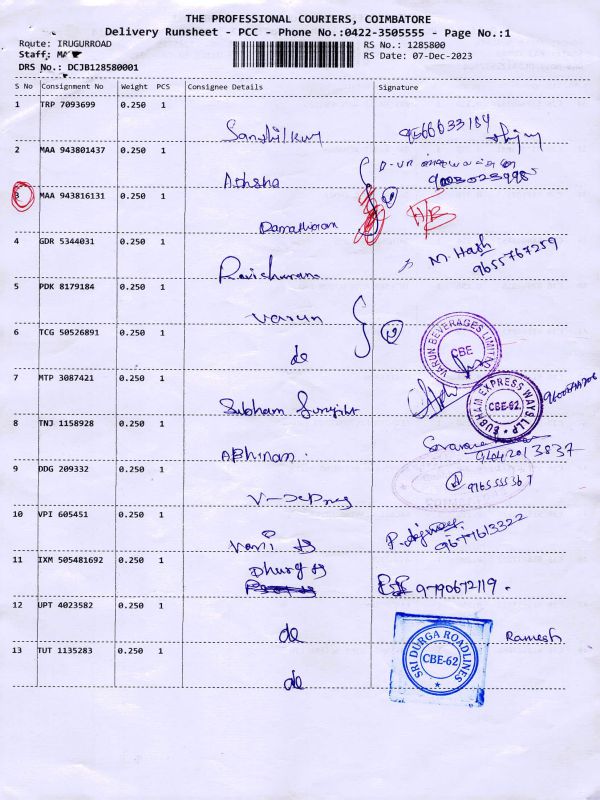 THE PROFESSIONAL COURIERS, COIMBATORE
Delivery Runsheet - PCC - Phone No.:0422-3505555 - Page No.:1
Route: IRUGURROAD
RS No.: 1285800
Staff: MA
RS Date: 07-Dec-2023
DRS No.: DCJB128580001
S No Consignment No Weight PCS Consignee Details Signature
1 TRP 7093699 0.250 1
9566633184
2 MAA 943801437 0.250 1 Athsha
3 MAA 943816131 0.250 1
4 GDR 5344031 0.250 1 M. Hash
9655767259
5 PDK 8179184 0.250 1 Varun
6 TCG 50526891 0.250 1 do
VARUN BEVERAGES LIMITED
CBE
7 MTP 3087421 0.250 1 Subham
SUBHAM EXPRESS WAYS LLP
CBE-62
8 TNJ 1158928 0.250 1 Abhinan
9 DDG 209332 0.250 1
10 VPI 605451 0.250 1 Vani
9677613322
11 IXM 505481692 0.250 1
9790672119
12 UPT 4023582 0.250 1 do Ramesh
SRI DURGA ROADLINES
CBE-62
13 TUT 1135283 0.250 1 do